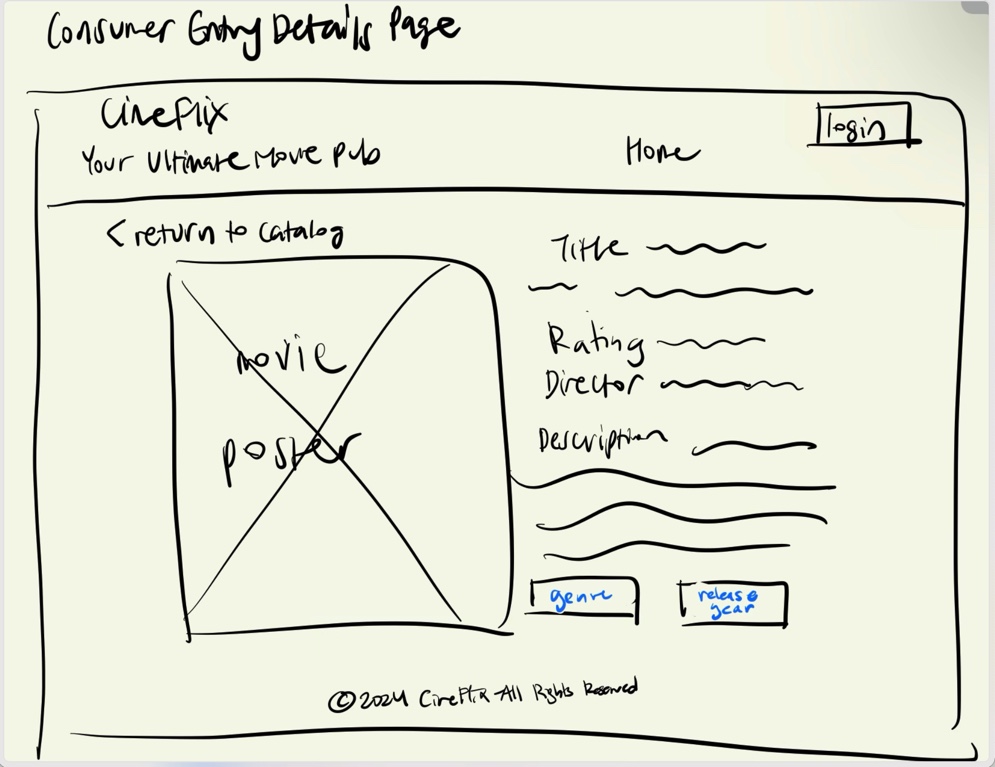 Consumer Entry Details Page
CineFlix
login
Your Ultimate Movie Pub
Home
< return to catalog
movie
poster
Title
Rating
Director
Description
genre
release
year
© 2024 CineFlix All Rights Reserved